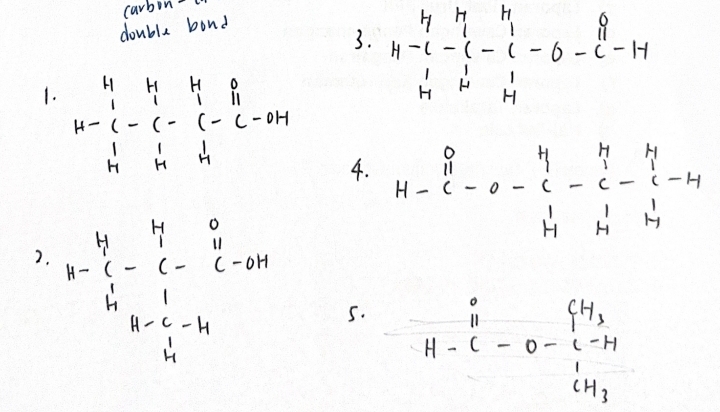 carbon
double bond
1.
H H H O
H-C-C-C-C-OH
H H H
2.
H H O
H-C-C-C-OH
H
H-C-H
H
3.
H H H O
H-C-C-C-O-C-H
H H H
4.
O H H H
H-C-O-C-C-C-H
H H H
5.
O CH3
H-C-O-C-H
CH3